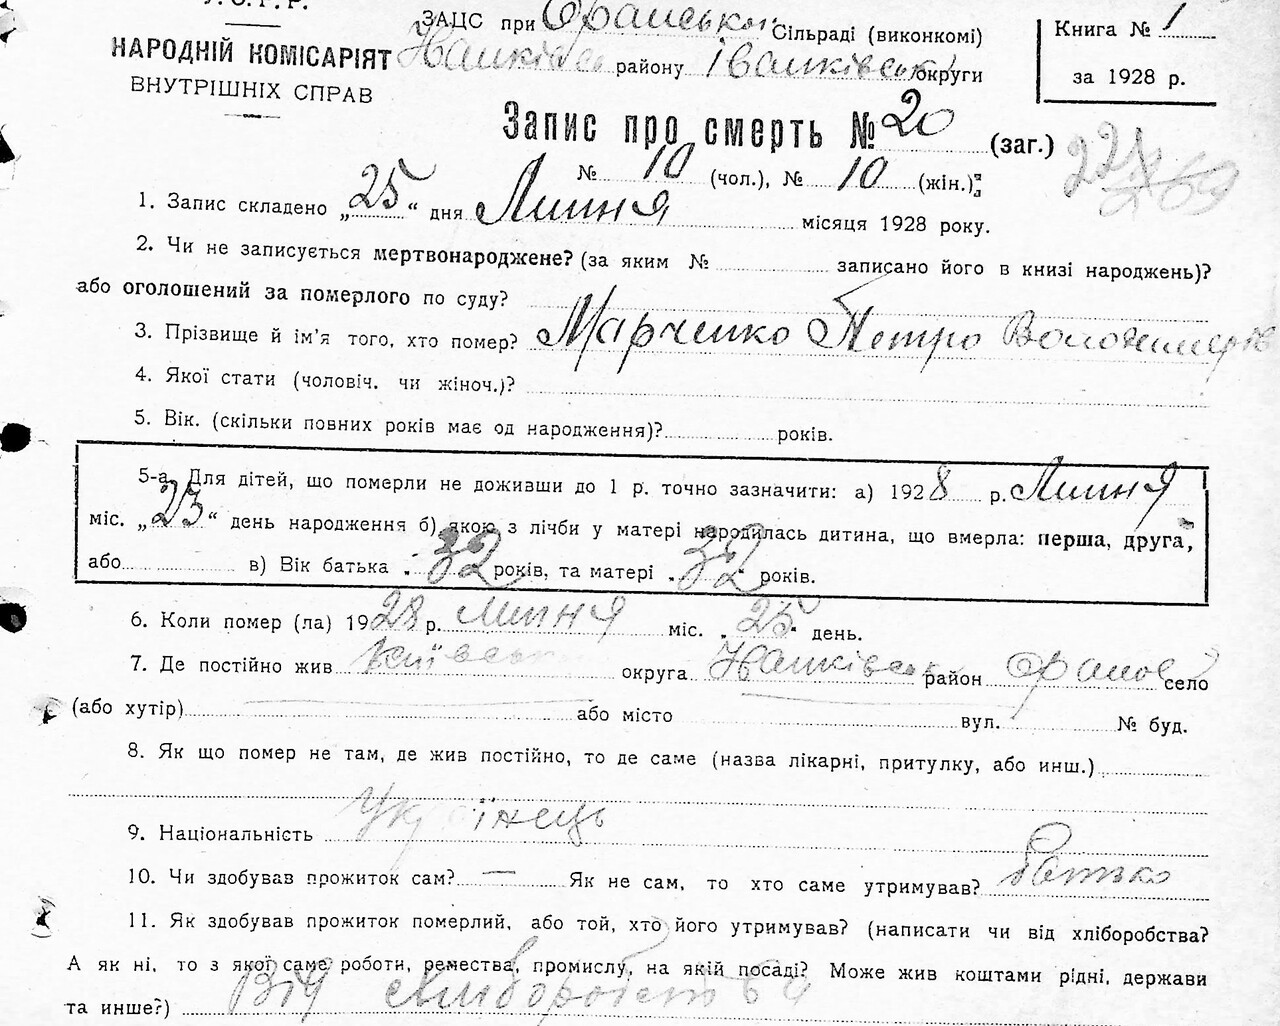 У.С.Р.Р.
НАРОДНІЙ КОМІСАРІЯТ
ВНУТРІШНІХ СПРАВ
ЗАЦС при Оранської Сільраді (виконкомі)
району Іванківської округи
Книга № 1
за 1928 р.
Запис про смерть № 20 (заг.)
№ 10 (чол.), № 10 (жін.)
1. Запис складено „25“ дня Липня місяця 1928 року.
2. Чи не записується мертвонароджене? (за яким № записано його в книзі народжень)?
або оголошений за померлого по суду?
3. Прізвище й ім'я того, хто помер? Марченко Петро Володимирів
4. Якої стати (чоловіч. чи жіноч.)?
5. Вік. (скільки повних років має од народження)? років.
5-а. Для дітей, що померли не доживши до 1 р. точно зазначити: а) 1928 р. Липня
міс. „23“ день народження б) якою з лічби у матері народилась дитина, що вмерла: перша, друга,
або в) Вік батька 32 років, та матері 32 років.
6. Коли помер (ла) 1928 р. Липня міс. 25 день.
7. Де постійно жив Київськ округа район Оране село
(або хутір) або місто вул. № буд.
8. Як що помер не там, де жив постійно, то де саме (назва лікарні, притулку, або инш.)
9. Національність Українець
10. Чи здобував прожиток сам? — Як не сам, то хто саме утримував? Батько
11. Як здобував прожиток померлий, або той, хто його утримував? (написати чи від хліборобства?
А як ні, то з якої саме роботи, ремества, промислу, на якій посаді? Може жив коштами рідні, держави
та инше?) Від хліборобства